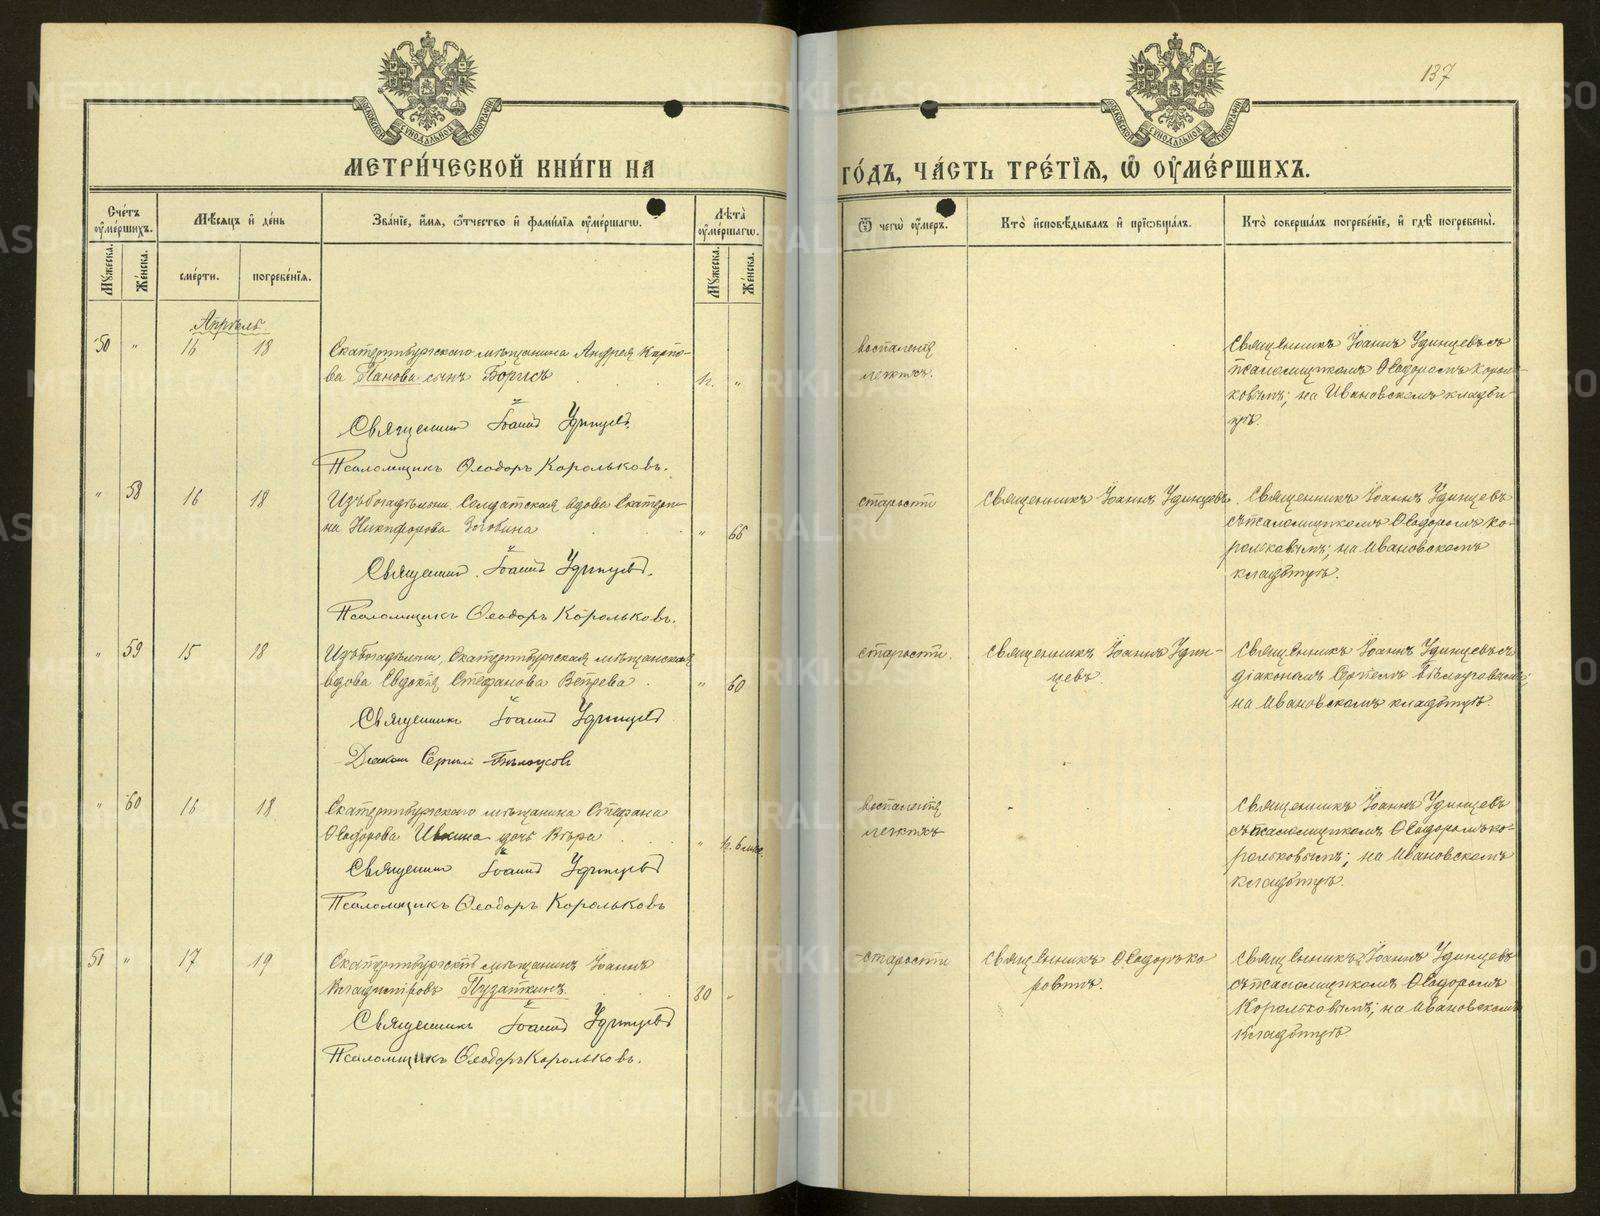 137
МОСКОВСКОЙ СѴНОДАЛЬНОЙ ТИПОГРАФІИ
МОСКОВСКОЙ СѴНОДАЛЬНОЙ ТИПОГРАФІИ
МЕТРИ́ЧЕСКОЙ КНИ́ГИ НА ГО́ДЪ, ЧА́СТЬ ТРЕ́ТІѦ, Ѡ҆ ОУ҆МЕ́РШИХЪ.
Сче́тъ оу҆ме́ршихъ.
Мѣ́сѧцъ и҆ де́нь
Зва́нїе, и҆́мѧ, ѻ҆́тчество и҆ фами́лїѧ оу҆ме́ршагѡ.
Лѣ́та оу҆ме́ршагѡ.
Ѿ чегѡ̀ оу҆́меръ.
Кто̀ и҆сповѣ́дывалъ и҆ прїѻбща́лъ.
Кто̀ соверша́лъ погребе́нїе, и҆ гдѣ̀ погребены̀.
Мꙋ́жеска.
Же́нска.
сме́рти.
погребе́нїѧ.
Мꙋ́жеска.
Же́нска.
Апрѣль.
50 " 16 18 Екатеринбургскаго мѣщанина Андрея Карпо-
ва Панова сынъ Борисъ "
Священник Іоаннъ Удинцевъ
Псаломщикъ Ѳеодоръ Корольковъ.
воспаленія
легкихъ.
Священникъ Іоаннъ Удинцевъ съ
псаломщикомъ Ѳеодоромъ Король-
ковымъ; на Ивановскомъ кладби-
щѣ.
" 58 16 18 Изъ богадѣльни Солдатская вдова Екатери-
на Никифорова " 66
Священник Іоаннъ Удинцевъ.
Псаломщикъ Ѳеодоръ Корольковъ.
старости
Священникъ Іоаннъ Удинцевъ
Священникъ Іоаннъ Удинцевъ
съ псаломщикомъ Ѳеодоромъ Ко-
рольковымъ; на Ивановскомъ
кладбищѣ.
" 59 15 18 Изъ богадѣльни, Екатеринбургская мѣщанская
вдова Евдокія Стефанова Вѣтрева " 60
Священникъ Іоаннъ Удинцевъ
Діакон Сергій Бѣлоусовъ
старости.
Священникъ Іоаннъ Удин-
цевъ.
Священникъ Іоаннъ Удинцевъ съ
діакономъ Сергіемъ Бѣлоусовымъ;
на Ивановскомъ кладбищѣ.
" 60 16 18 Екатеринбургскаго мѣщанина Стефана
Ѳеодорова Ивкина дочь Вѣра "
Священник Іоаннъ Удинцевъ
Псаломщикъ Ѳеодоръ Корольковъ
воспаленія
легкихъ
Священникъ Іоаннъ Удинцевъ
съ псаломщикомъ Ѳеодоромъ Ко-
рольковымъ; на Ивановскомъ
кладбищѣ.
51 " 17 19 Екатеринбургскій мѣщанинъ Іоаннъ
Владиміровъ Пузаткинъ. 80 "
Священникъ Іоаннъ Удинцевъ
Псаломщикъ Ѳеодоръ Корольковъ.
старости
Священникъ Ѳеодоръ Ко
ровинъ.
Священникъ Іоаннъ Удинцевъ
съ псаломщикомъ Ѳеодоромъ
Корольковымъ; на Ивановскомъ
кладбищѣ.
METRIKI.GASO-URAL.RU